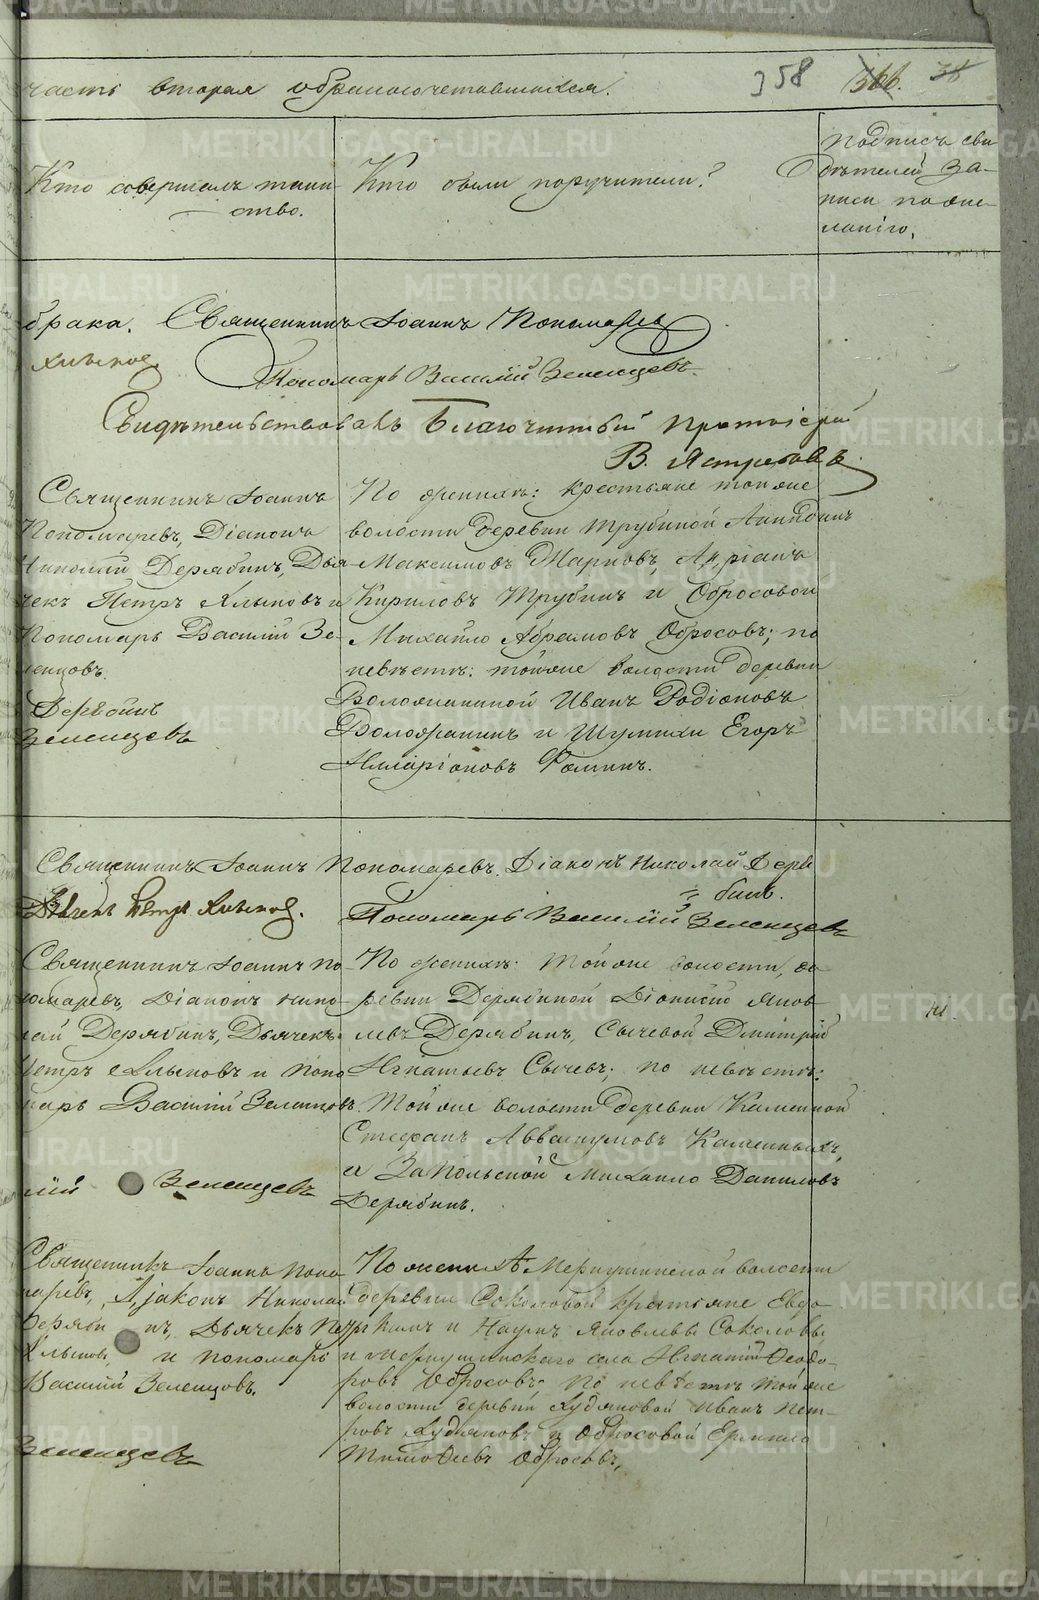 часть вторая о бракосочетавшихся.
358
366.
38
Кто совершалъ таин-
ство.
Кто были поручители?
Подпись сви
дѣтелей за-
писи по же-
ланію.
брака. Священникъ Іоаннъ Пономаревъ
Пономарь Василій Зеленцевъ.
Свидѣтельствовалъ Благочинный Протоіерей
В. Ястребовъ.
Священникъ Іоаннъ
Пономаревъ, Діаконъ
Николай Дерябинъ, Дья-
чекъ Петръ Хлыновъ и
Пономарь Василій Зе-
ленцовъ.
Дерябинъ
Зеленцевъ
По женихѣ: крестьяне тойже
волости деревни Трубиной
Максимовъ Жарковъ, Андріанъ
Кириловъ Трубинъ и Обросовой
Михайло Абрамовъ Обросовъ; по
невѣстѣ: тойже волости деревни
Воложаниной Иванъ Родіоновъ
Воложанинъ и Шумихи Егоръ
Илларіоновъ Фоминъ.
Священникъ Іоаннъ Пономаревъ. Діаконъ Николай Деря
бинъ.
Дьячекъ Петръ Хлыновъ.
Пономарь Василій Зеленцевъ
Священникъ Іоаннъ По
номаревъ, Діаконъ Нико-
лай Дерябинъ, Дьячекъ
Петръ Хлыновъ и Поно
марь Василій Зеленцовъ.
лій Зеленцевъ
По женихѣ: тойже волости, де
ревни Дерябиной Діонисій Яков
левъ Дерябинъ, Сычевой Дмитрій
Игнатьевъ Сычевъ; по невѣстѣ:
тойже волости деревни Каменной
Стефанъ Аввакумовъ Каменныхъ,
и Запольской Михайло Даниловъ
Дерябинъ.
Священникъ Іоаннъ Поно
маревъ, Діаконъ Николай
Дерябинъ, Дьячекъ Петръ
Хлыновъ, и пономарь
Василій Зеленцовъ.
Зеленцевъ
По женихѣ Меркушинской волости
деревни Соколовой крестьяне Евдо-
кимъ и Наумъ Яковлевы Соколовы
и Меркушинскаго села Игнатій Ѳеодо-
ровъ Обросовъ. По невѣстѣ тойже
волости деревни Кудляковой Иванъ Пет-
ровъ Кудляковъ и Обросовой Ермило
Тимоѳеевъ Обросовъ.
METRIKI.GASO-URAL.RU